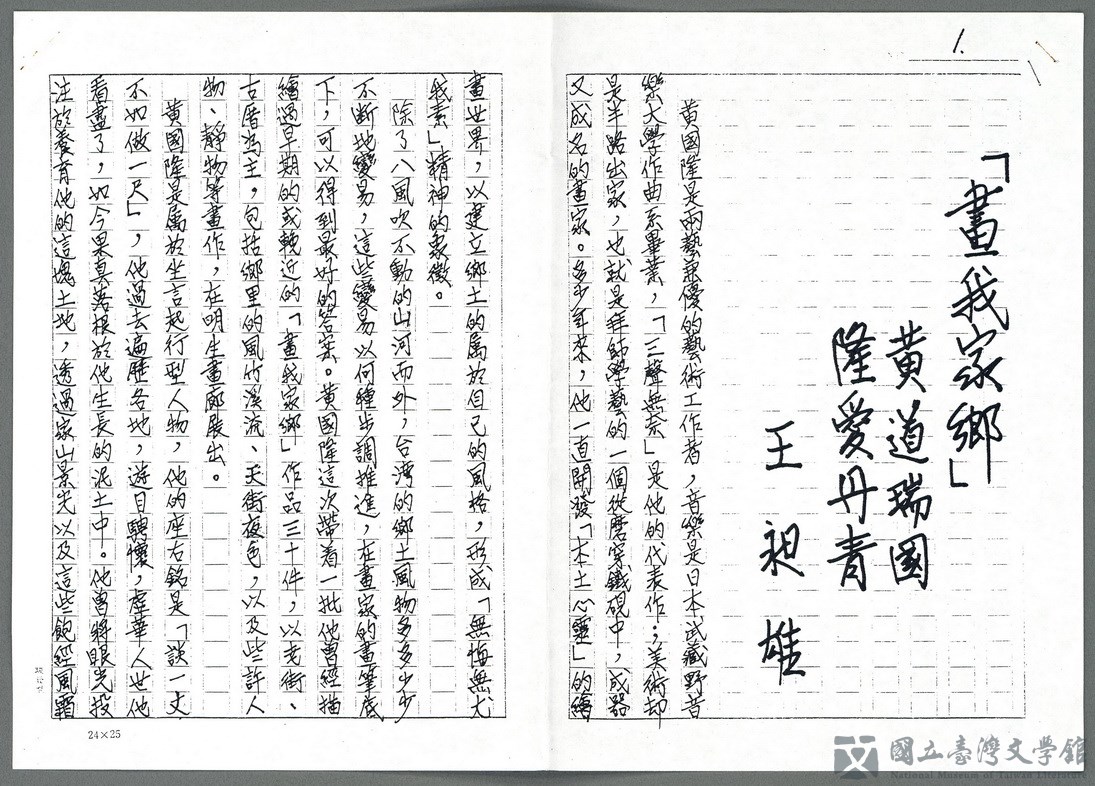 1.
「畫我家鄉」
黃道瑞國
隆愛丹青
王昶雄
黃國隆是兩藝兼優的藝術工作者，音樂是日本武藏野音
樂大學作曲系畢業，「三聲無奈」是他的代表作；美術却
是半路出家，也就是拜師學藝的一個從磨穿鐵硯中，成器
又成名的畫家。多少年來，他一直開發「本土心靈」的繪
畫世界，以建立鄉土的屬於自己的風格，形成「無悔無尤
我素」精神的象徵。
除了八風吹不動的山河而外，台灣的鄉土風物多多少少
不斷地變易，這些變易以何種步調推進，在畫家的畫筆底
下，可以得到最好的答案。黃國隆這次帶着一批他曾經描
繪過早期的或輓近的「畫我家鄉」作品三十件，以老街、
古厝為主，包括鄉里的風竹溪流、天街夜色，以及些許人
物、靜物等畫作，在明生畫廊展出。
黃國隆是屬於坐言起行型人物，他的座右銘是「談一丈
不如做一尺」，他過去遍歷各地，遊目騁懷，產華人世他
看盡了，如今果真落根於他生長的泥土中。他曾將眼光投
注於養育他的這塊土地，透過家山景光以及這些飽經風霜
24×25
國立臺灣文學館
National Museum of Taiwan Literature